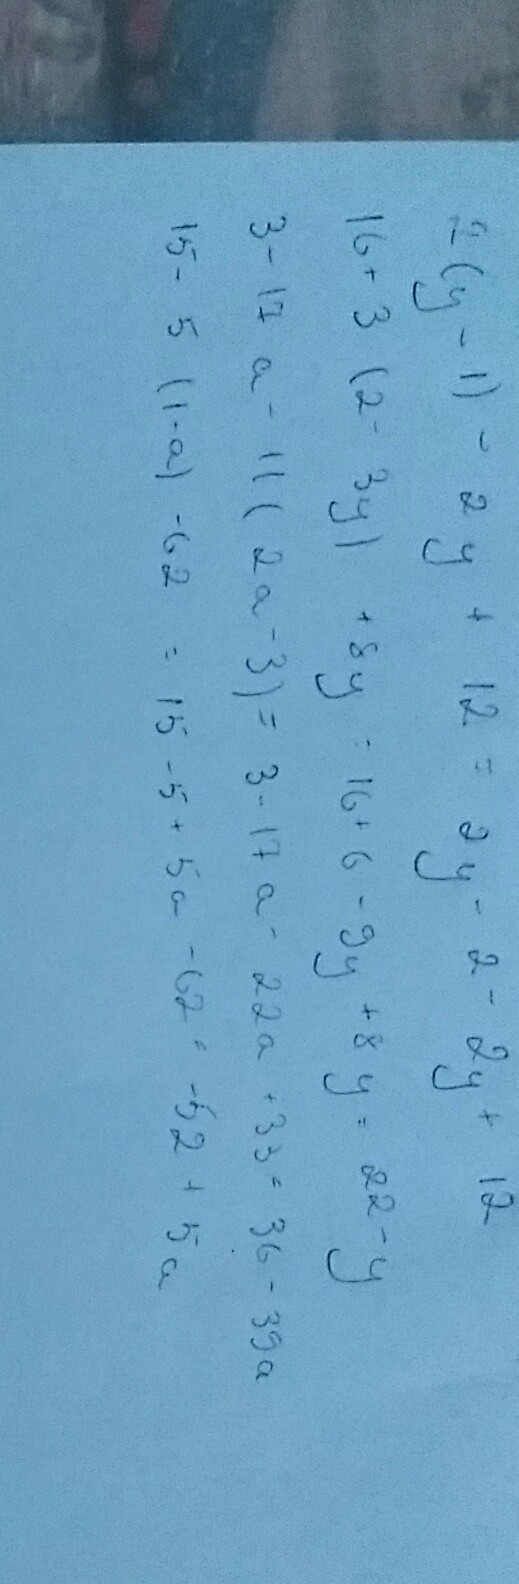 2(y-1)-2y+12=2y-2-2y+12
16+3(2-3y)+8y=16+6-9y+8y=22-y
3-17a-11(2a-3)=3-17a-22a+33=36-39a
15-5(1-a)-62=15-5+5a-62=-52+5a